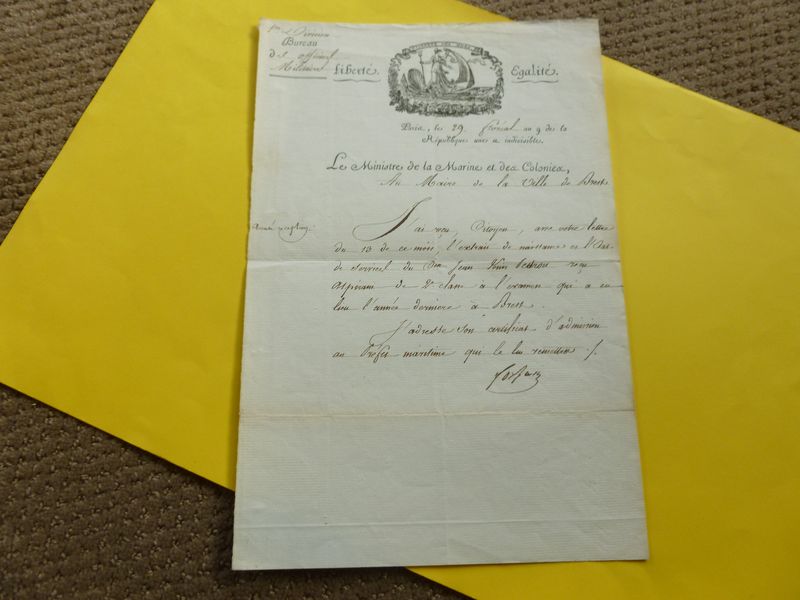 1re Division
Bureau
des officiers
Militaires
Liberté.
Egalité.
Paris, le 29 floréal an 9 de la
République une et indivisible.
Le Ministre de la Marine et des Colonies,
Au Maire de la Ville de Brest
J'ai reçu, Citoyen, avec votre lettre
du 13 de ce mois, l'extrait de naissance et l'Etat
de services du Cen Jean reçu
aspirant de 2e classe à l'examen qui a eu
lieu l'année dernière à Brest.
J'adresse son certificat d'admission
au Préfet maritime qui le lui remettra ./.